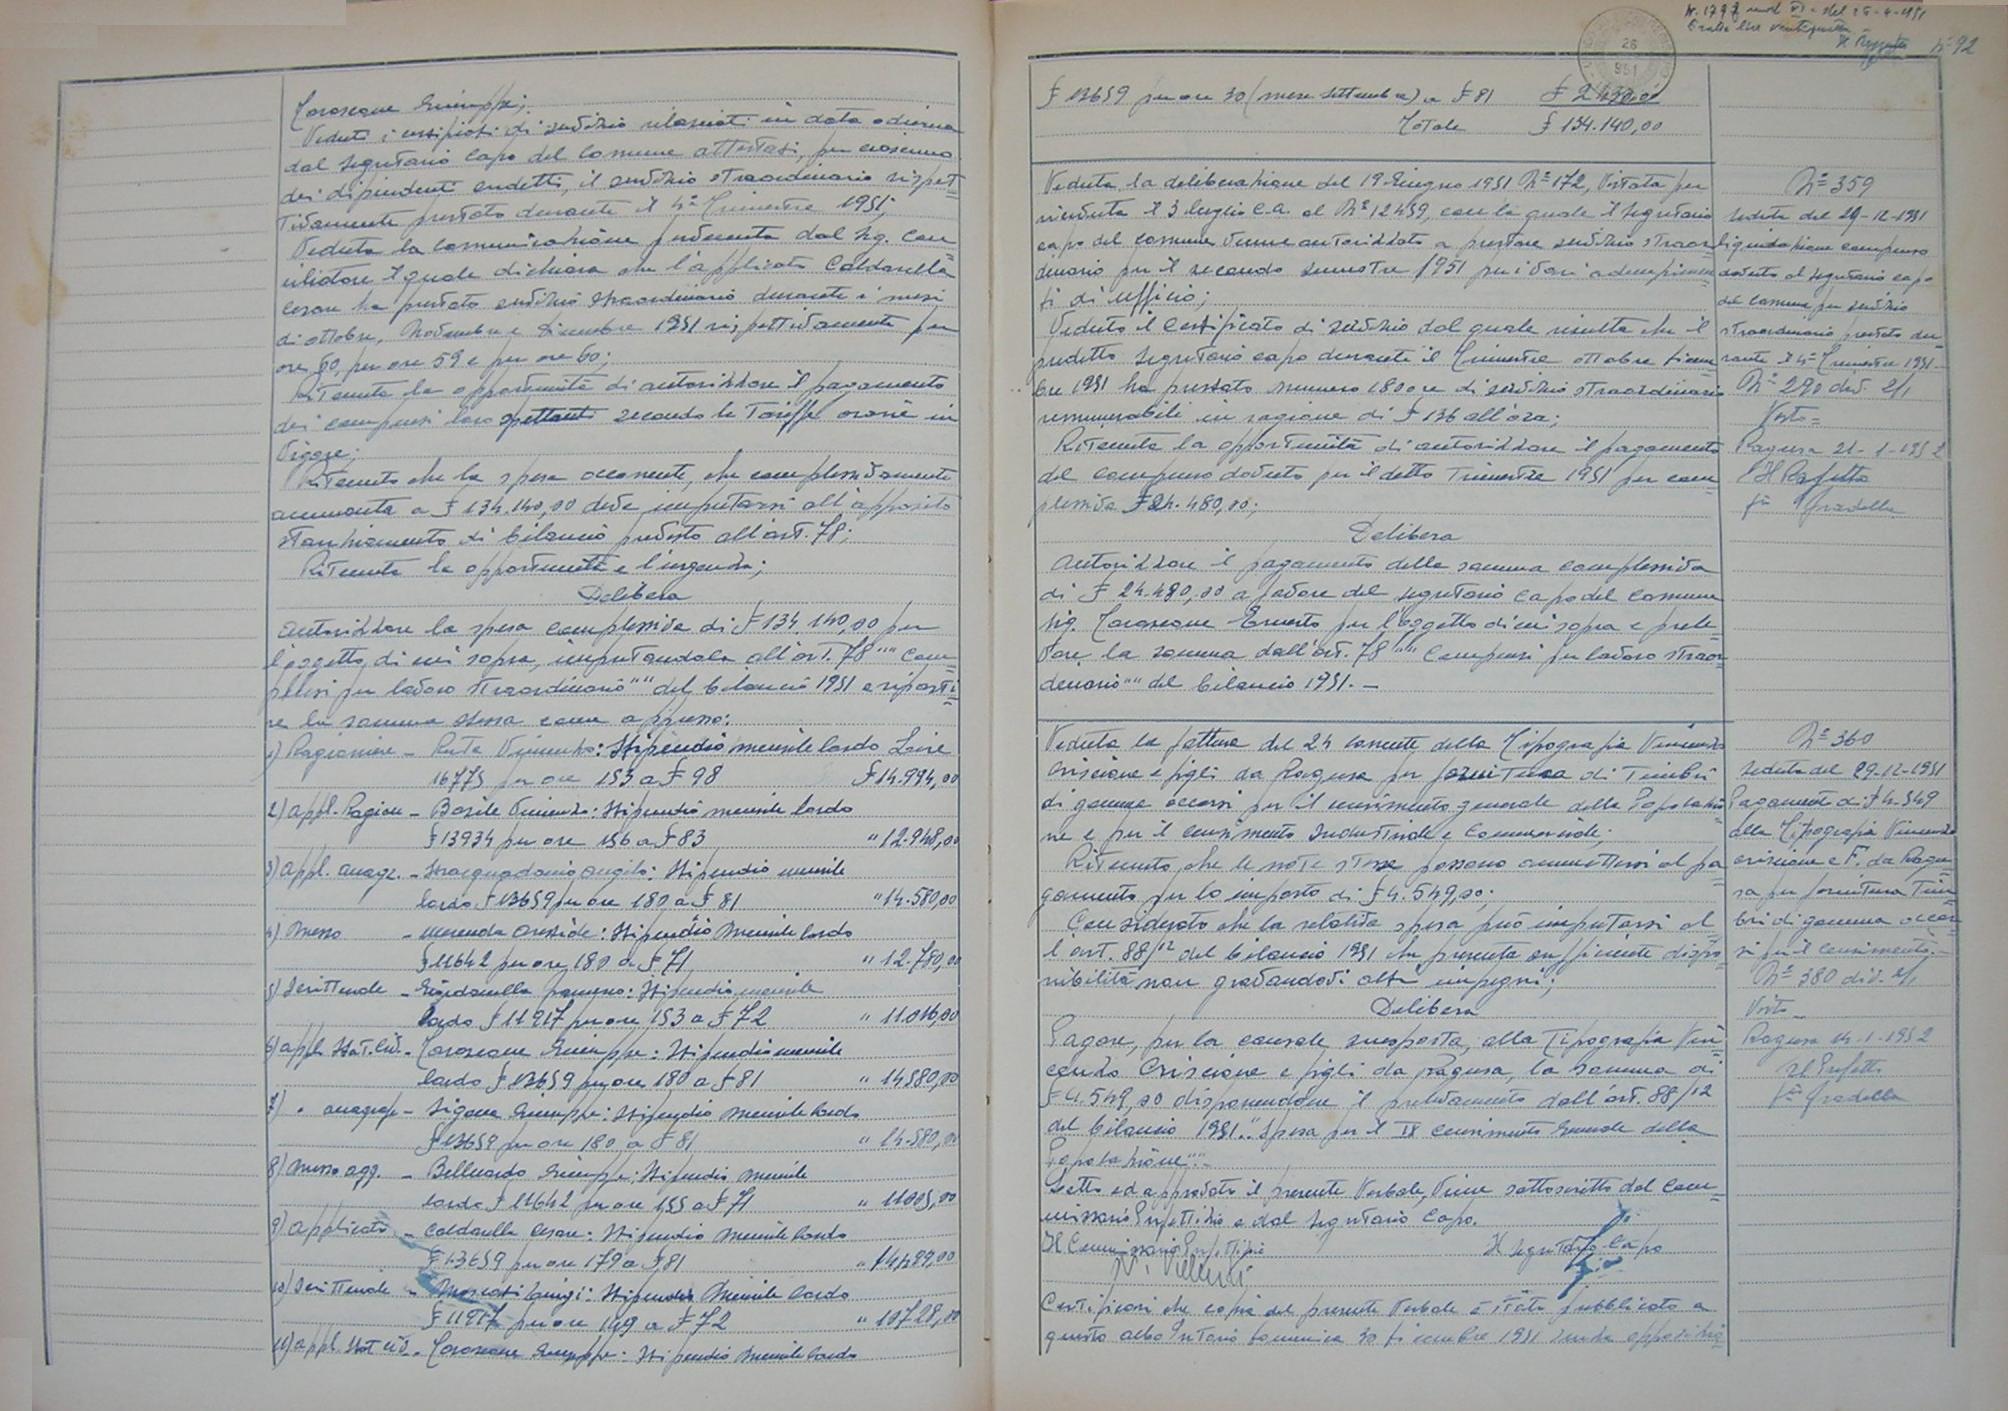 Veduti i certificati di servizio rilasciati in data odierna
dal Segretario Capo del Comune attestati, per ciascuno
dei dipendenti endetti, il servizio straordinario rispet=
tivamente prestato durante il 4° Trimestre 1951;
Veduta la comunicazione pervenuta dal Sig. Con=
ciliatore il quale dichiara che l'applicato Caldarella
Cesare ha prestato servizio straordinario durante i mesi
di ottobre, Novembre e Dicembre 1951 rispettivamente per
ore 60, per ore 59 e per ore 60;
Ritenuta la opportunità di autorizzare il pagamento
dei compensi loro spettanti secondo le Tariffe orarie in
Vigore;
Ritenuto che la spesa occorrente, che complessivamente
ammonta a £ 134.140,00 deve imputarsi all'apposito
stanziamento di bilancio previsto all'art. 78;
Ritenuta la opportunità e l'urgenza;
Delibera
Autorizzare la spesa complessiva di £ 134.140,00 per
l'oggetto di cui sopra, imputandola all'art. 78 "" Com=
pensi per lavoro straordinario "" del bilancio 1951 e riparti=
re la somma stessa come appresso:
1) Ragioniere - Vincenzo: Stipendio mensile lordo Lire
16775 per ore 153 a £ 98 £ 14.994,00
2) Appl. Ragion - Basile Vincenzo: Stipendio mensile lordo
£ 13934 per ore 156 a £ 83 " 12.948,00
3) Appl. anagr. - Angelo: Stipendio mensile
lordo £ 13659 per ore 180 a £ 81 " 14.580,00
4) Messo - Merenda: Stipendio Mensile lordo
£ 11642 per ore 180 a £ 71 " 12.780,00
5) Scrittende - Stipendio mensile
lordo £ 11917 per ore 153 a £ 72 " 11.016,00
6) appl. Stat. Civ. - Giuseppe: Stipendio mensile
lordo £ 13659 per ore 180 a £ 81 " 14580,00
7) " anagrafe - Giuseppe: Stipendio Mensile lordo
£ 13659 per ore 180 a £ 81 " 14.580,00
8) Messo agg. - Belluardo Giuseppe: Stipendio Mensile
lordo £ 11642 per ore 155 a £ 71 " 11005,00
9) Applicato - Caldarella Cesare: Stipendio Mensile lordo
£ 13659 per ore 179 a £ 81 " 14499,00
10) Scrittende - Luigi: Stipendio Mensile lordo
£ 11917 per ore 149 a £ 72 " 10728,00
11) appl. Stat Civ. - Giuseppe: Stipendio Mensile lordo
N° 92
26
951
£ 13659 per ore 30 (mese Settembre) a £ 81 £ 2430,0
Totale £ 134.140,00
Veduta la deliberazione del 19 Giugno 1951 N° 172, Vistata per
ricevuta il 3 luglio c.a. al N° 12459, con la quale il Segretario
capo del comune venne autorizzato a prestare servizio straor=
dinario per il secondo semestre 1951 per i vari adempimen=
ti di ufficio;
Veduto il Certificato di servizio dal quale risulta che il
predetto Segretario capo durante il Trimestre ottobre Dicem=
bre 1951 ha prestato numero 180 ore di servizio straordinario
remunerabili in ragione di £ 136 all'ora;
Ritenuta la opportunità di autorizzare il pagamento
del compenso dovuto per il detto Trimestre 1951 per com=
plessive £ 24.480,00;
Delibera
Autorizzare il pagamento della somma complessiva
di £ 24.480,00 a favore del Segretario Capo del Comune
Sig. Ernesto per l'oggetto di cui sopra e prele=
vare la somma dall'art. 78 "" Compensi per lavoro straor=
dinario "" del bilancio 1951. -
N° 359
Seduta del 29-12-1951
Liquidazione compenso
dovuto al segretario capo
del Comune per servizio
straordinario prestato du=
rante il 4° Trimestre 1951 -
N° 290 div. 2/1
Visto =
Ragusa 21-1-1952
Il Prefetto
Veduta la fattura del 24 corrente della Tipografia Vincenzo
Criscione e figli da Ragusa per fornitura di Timbri
di gomma occorsi per il censimento generale della Popolazio=
ne e per il censimento Industriale e Commerciale;
Ritenuto che le note stesse possono ammettersi al pa=
gamento per lo importo di £ 4.549,00;
Considerato che la relativa spesa può imputarsi al=
l'art. 88/12 del bilancio 1951 che presenta sufficiente dispo=
nibilità non gravandovi altri impegni;
Delibera
Pagare, per la causale suesposta, alla Tipografia Vin=
cenzo Criscione e figli da Ragusa, la somma di
£ 4.549,00 disponendone il prelevamento dall'art. 88/12
del bilancio 1951. " Spesa per il IX Censimento Generale della
Popolazione" -
Letto ed approvato il presente Verbale, Viene sottoscritto dal Com=
missario Prefettizio e dal Segretario Capo.
Il Commissario Prefettizio Il Segretario Capo
Certificasi che copia del presente Verbale è stata pubblicata a
questo albo Pretorio Domenica 30 Dicembre 1951 senza opposizio
N° 360
Seduta del 29-12-1951
Pagamento di £ 4.549
alla Tipografia Vincenzo
Criscione e F. da Ragu=
sa per fornitura Tim=
bri di gomma occor=
si per il censimento. -
N° 380 div. 2/1
Visto -
Ragusa 14-1-1952
Il Prefetto